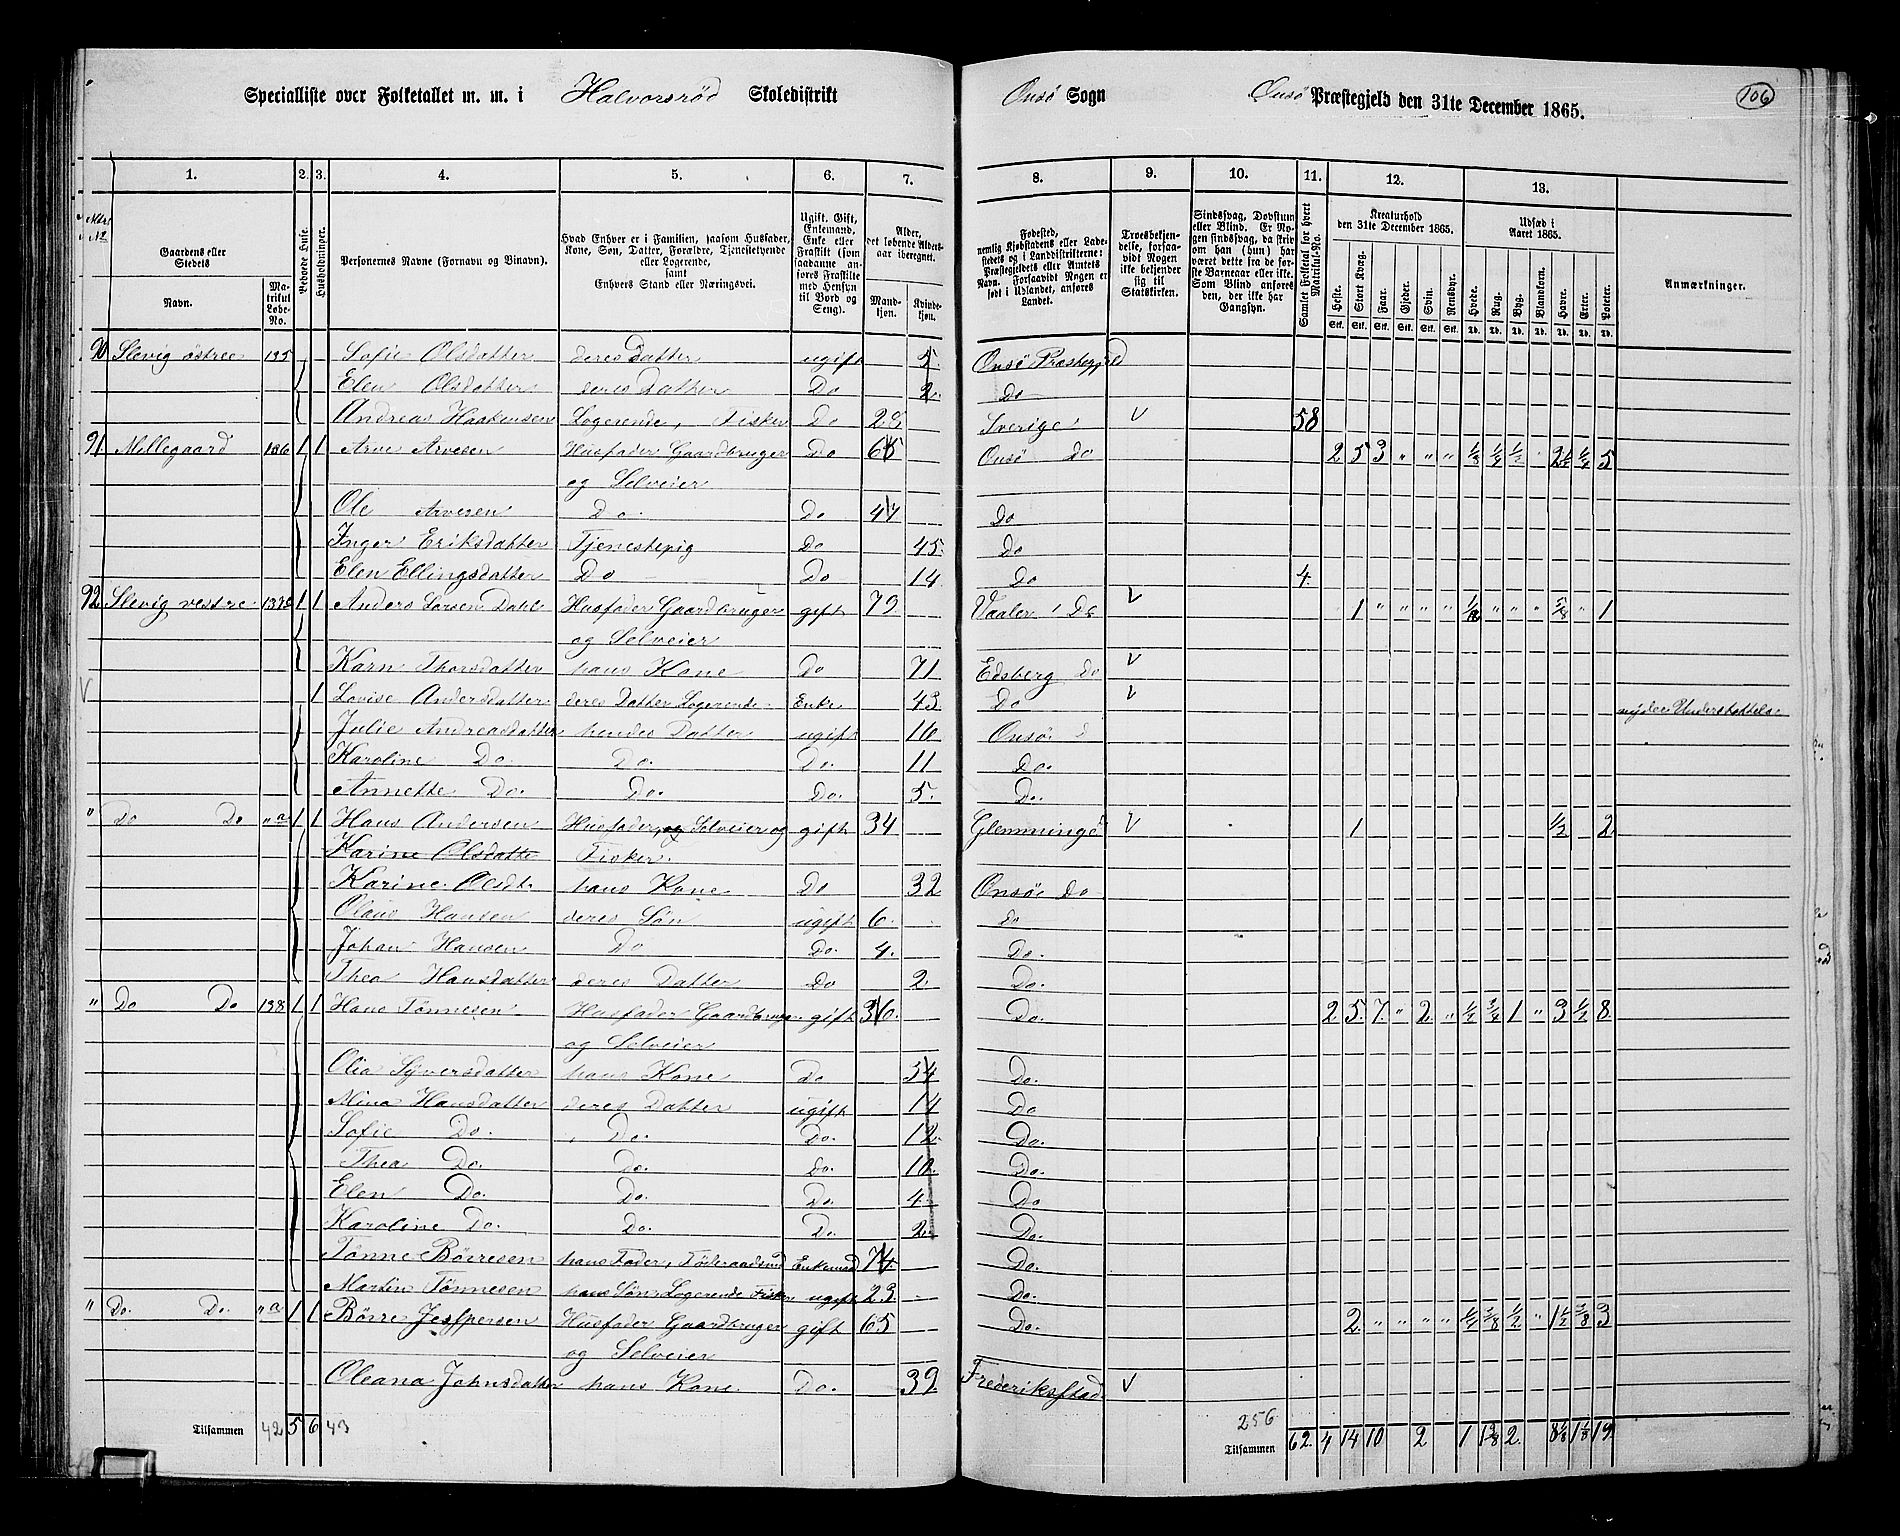 Specialliste over Folketallet m. m. i Halvorsrød Skoledistrikt
Onsö Sogn Onsö Præstegjeld den 31te December 1865.
106
1. 2. 3. 4. 5. 6. 7. 8. 9. 10. 11. 12. 13.
Gaardens eller Stedets
Navn.
Matrikul Løbe-No.
Beboede Huse.
Husholdninger.
Personernes Navne (Fornavn og Binavn).
Hvad Enhver er i Familien, saasom Husfader, Kone, Søn, Datter, Forældre, Tjenestetyende eller Logerende, samt Enhvers Stand eller Næringsvei.
Ugift, Gift, Enkemand, Enke eller Fraskilt (som saadanne anføres Fraskilte med Hensyn til Bord og Seng).
Alder, det løbende Aldersaar iberegnet.
Mandkjøn. Kvindekjøn.
Fødested, nemlig Kjøbstadens eller Ladestedets og i Landdistrikterne: Præstegjeldets eller Amtets Navn. Forsaavidt Nogen er født i Udlandet, anføres Landet.
Troesbekjendelse, forsaavidt Nogen ikke bekjender sig til Statskirken.
Sindssvag, Døvstum eller Blind. Er Nogen sindssvag, da skrives om han (hun) har været dette fra de første Barneaar eller ikke. Som Blind anføres den, der ikke har Gangsyn.
Samlet Folketal for hvert Matrikul-No.
Kreaturhold den 31te December 1865.
Heste. Stort Kvæg. Faar. Gjeder. Svin. Rensdyr.
Udsæd i Aaret 1865.
Hvede. Rug. Byg. Blandkorn. Havre. Erter. Poteter.
Anmærkninger.
90 Slevig östre 135 Sofie Olsdatter deres Datter ugift 5 Onsö Præstegjeld
Elen Olsdatter deres Datter Do 2 Do
Andreas Haakensen Logerende, Fisker Do 28 Sverige V 58
91 Millegaard 136 1 1 Arne Arvesen Husfader Gaardbruger Do 65 Onsö Do 2 5 3 " " " 1/3 1/4 1/2 " 2 1/2 1/4 5
og Selveier
Ole Arvesen Do. Do 44 Do
Inger Eriksdatter Tjenestepig Do 45. Do
Elen Ellingsdatter Do Do 14 Do 4.
92 Slevig vestre 1 1 Anders Larsen Dahl Husfader Gaardbruger gift 79 Vaaler Do V 1 " " " " 1/8 " " " 5/8 " 1
og Selveier
Karn Thorsdatter hans Kone Do 71 Edsberg Do V
V 1 Lovise Andersdatter deres Datter Logerende Enke 43 Do V nyder Understøttelse
Julie Andreasdatter hendes Datter ugift 16 Onsö
Karoline Do. Do. Do. 11 Do.
Annette Do. Do. Do. 5. Do.
" Do Do " a 1 1 Hans Andersen Husfader og Selveier og gift 34 Glemminge V 1 1/2 2
Karine Olsdatte Fisker.
Karine Olsdt. hans Kone Do 32 Onsö Do
Olaus Hansen deres Søn ugift 6. do
Johan Hansen Do Do. 4. Do.
Thea Hansdatter deres Datter Do 2 Do.
" Do Do 138 1 1 Hans Tönnesen Husfader Gaardbruger gift 36. Do. 2 5. 7. " 2. " 1/2 3/4 1 " 3 1/2 8
og Selveier
Olia Syversdatter hans Kone Do 34 Do.
Mina Hansdatter deres Datter ugift 14 Do
Sofie Do. Do. Do. 12. Do.
Thea Do. Do. Do. 10 Do.
Elen Do. Do. Do. 4. Do
Karoline Do. Do. Do. 2. Do.
Tönne Börresen hans Fader, Föderaadsmd Enkemad 74 Do.
Martin Tönnesen hans Søn Logerende Fisker ugift 23. Do.
" Do. Do. " a 1 1 Börre Jespersen Husfader Gaardbruger gift 65 Do. 2. " " " " 1/4 3/8 1/2 " 1 1/2 3/8 3
og Selveier
Oleana Johnsdatter hans Kone Do. 39. Frederikstad V
Tilsammen 42 5 6 43
256
Tilsammen 62. 4 14 10 2 1 1 3/8 2. 8 1/8 1 1/8 19